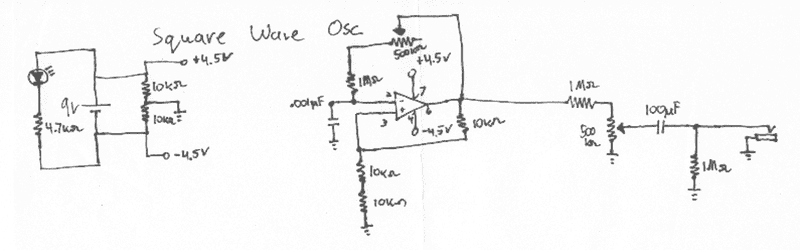 Square Wave Osc
+4.5V
10kΩ
9v
10kΩ
4.7kΩ
-4.5V
500kΩ
+4.5V
1MΩ
.001µF
2
7
-
+
6
3
4
-4.5V
10kΩ
10kΩ
10kΩ
1MΩ
500
kΩ
100µF
1MΩ